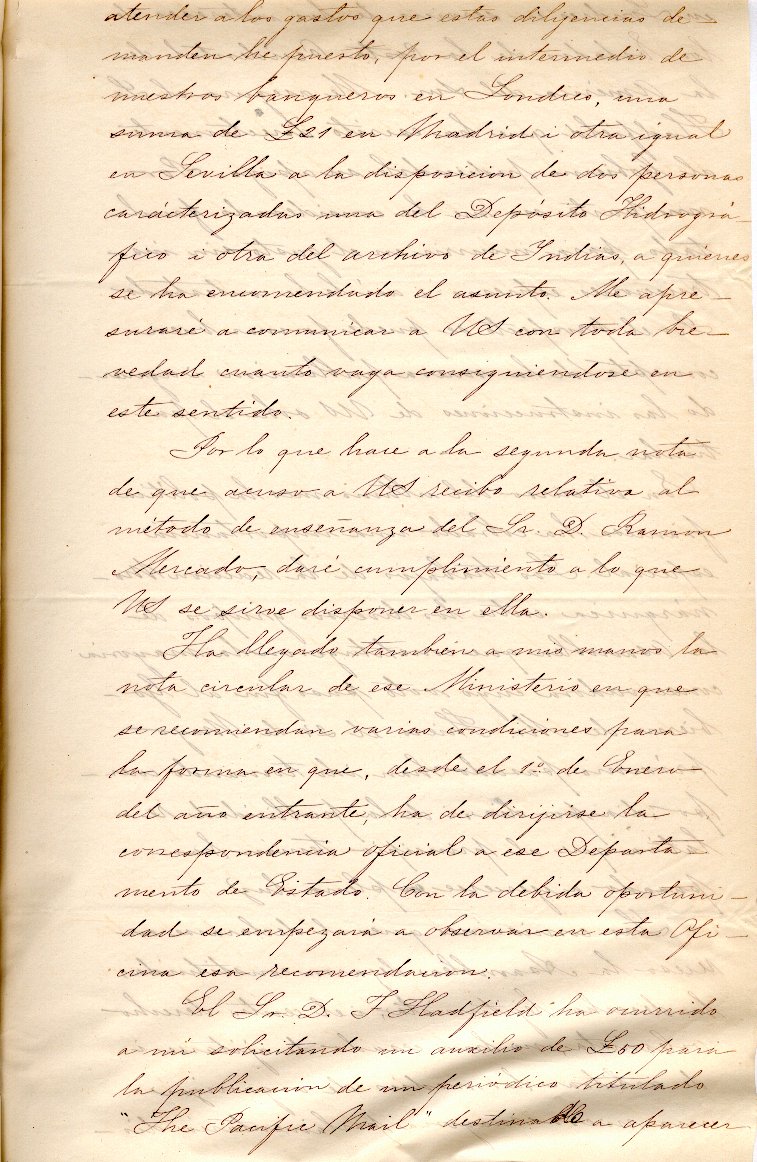 atender a los gastos que estas dilijencias de-
manden he puesto, por el intermedio de
nuestros banqueros en Londres, una
suma de £21 en Madrid i otra igual
en Sevilla a la disposicion de dos personas
carácterizadas una del Depósito Hidrográ-
fico i otra del archivo de Indias, a quienes
se ha encomendado el asunto. Me apre-
suraré a comunicar a US con toda bre-
vedad cuanto vaya consiguiendose en
este sentido.
Por lo que hace a la segunda nota
de que acuso a US recibo relativa al
método de enseñanza del Sr. D. Ramon
Mercado, daré cumplimiento a lo que
US se sirve disponer en ella.
Ha llegado tambien a mis manos la
nota circular de ese Ministerio en que
se recomiendan varias condiciones para
la forma en que, desde el 1º de Enero
del año entrante, ha de dirijirse la
correspondencia oficial a ese Departa-
mento de Estado. Con la debida oportuni-
dad se empezará a observar en esta Ofi-
cina esa recomendacion.
El Sr. D. F Hadfield ha ocurrido
a mi solicitando un auxilio de £50 para
la publicacion de un periódico titulado
"The Pacific Mail" destinado a aparecer